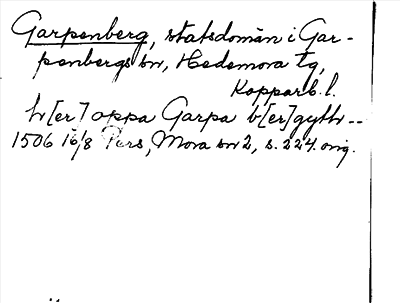 Garpenberg, statsdomän i Gar-
penbergs sn, Hedemora tg,
Kopparb. l.
h[er] oppa Garpa b[er]gyth--
1506 16/8 Pers, Mora sn 2, s. 224. orig.